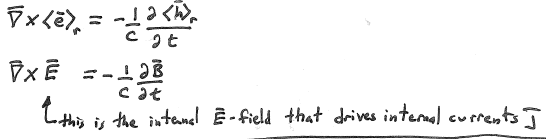 ∇̄ × <ē>ᵣ = -1/c ∂<h̄>ᵣ/∂t
∇̄ × Ē = -1/c ∂B̄/∂t
this is the internal Ē-field that drives internal currents J̄